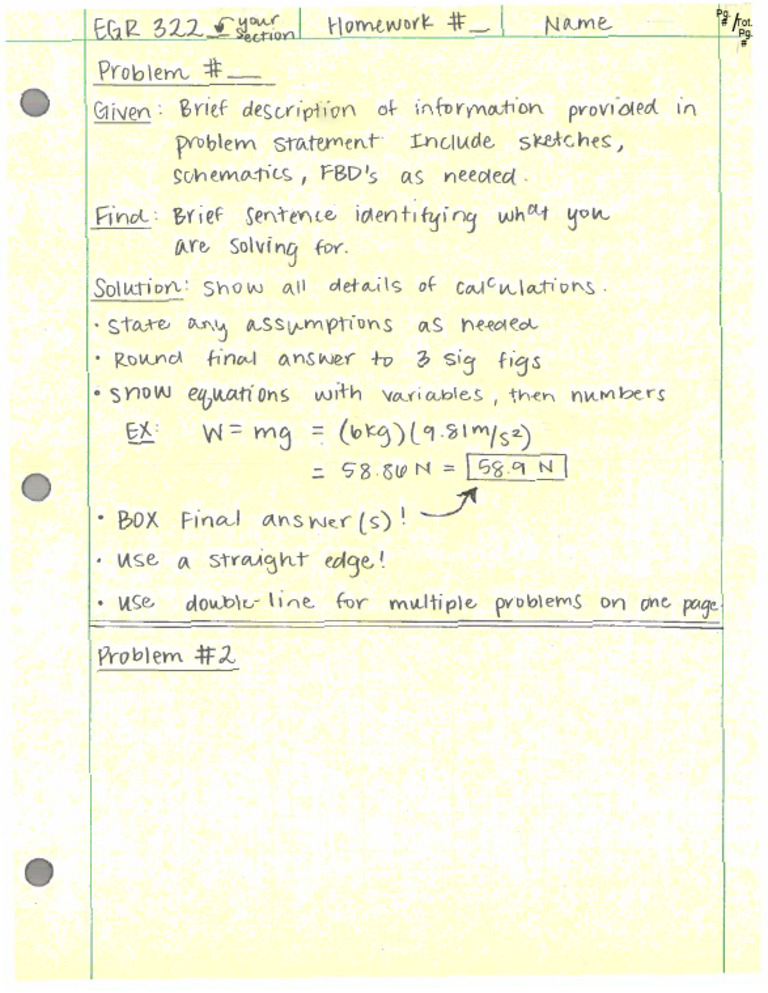 EGR 322_ your section Homework #_ Name Pg. # / Tot. Pg. #
Problem #__
Given: Brief description of information provided in
problem statement Include sketches,
schematics, FBD's as needed.
Find: Brief sentence identifying what you
are solving for.
Solution: Show all details of calculations.
• State any assumptions as needed
• Round final answer to 3 sig figs
• Show equations with variables, then numbers
EX: W = mg = (6kg)(9.81m/s²)
= 58.86 N = 58.9 N
• BOX Final answer(s)!
• Use a straight edge!
• Use double-line for multiple problems on one page.
Problem #2